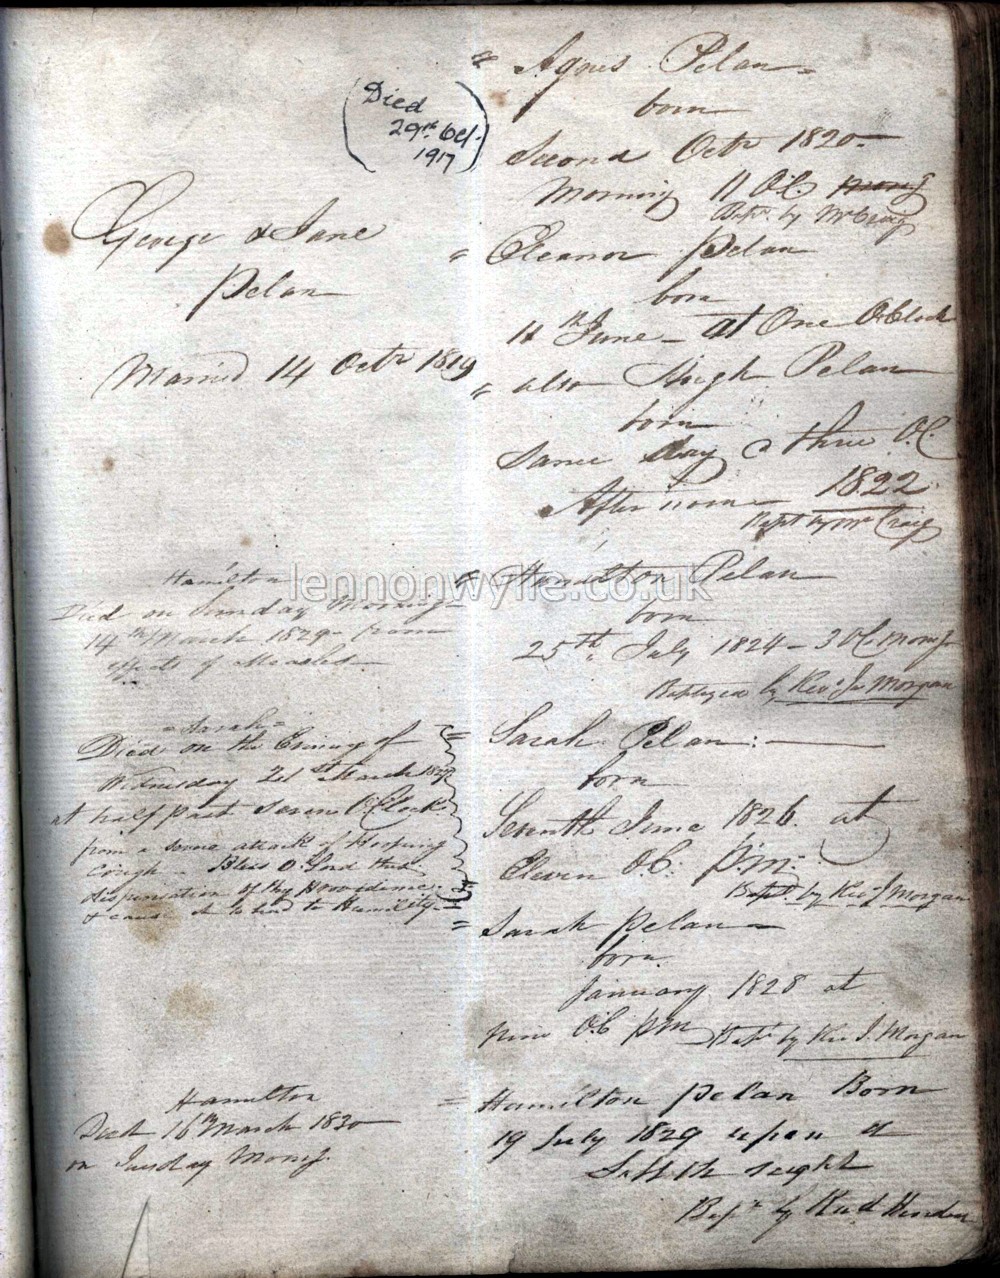 = Agnes Pelan =
born
Second Octr 1820 -
Morning 11 OC
Bapd. by Mr Craig
(Died
29th Oct.
1917)
George & Jane
Pelan
Married 14 Octr 1819
= Eleanor Pelan
born
11th June - at One OClock
= also Hugh Pelan
born
Same day @ three OC.
After noon - 1822
Bapt by Mr Craig
lennonwylie.co.uk
= Hamilton Pelan
born
25th July 1824 - 3 OC Morng
Baptized by Revd Js Morgan
Hamilton
Died on Sunday Morning
14th March 1829 from
effects of Measles
= Sarah Pelan : -
born
Seventh June 1826. at
Eleven OC. p.m.
Bapd. by Revd J Morgan
= Sarah =
Died on the Evening of
Wednesday 21st March 1827
at half past Seven OClock
from a severe attack of Hooping
Cough - Bless O Lord this
dispensation of thy Providence
& cause it to lead to Humility
= Sarah Pelan -
born
January 1828 at
nine OC pm Bapd by Rev J. Morgan
= Hamilton Pelan Born
19 July 1829 upon
Sabbath night
Bapd by Revd
Hamilton
Died 16th March 1830
on Tuesday Morng.